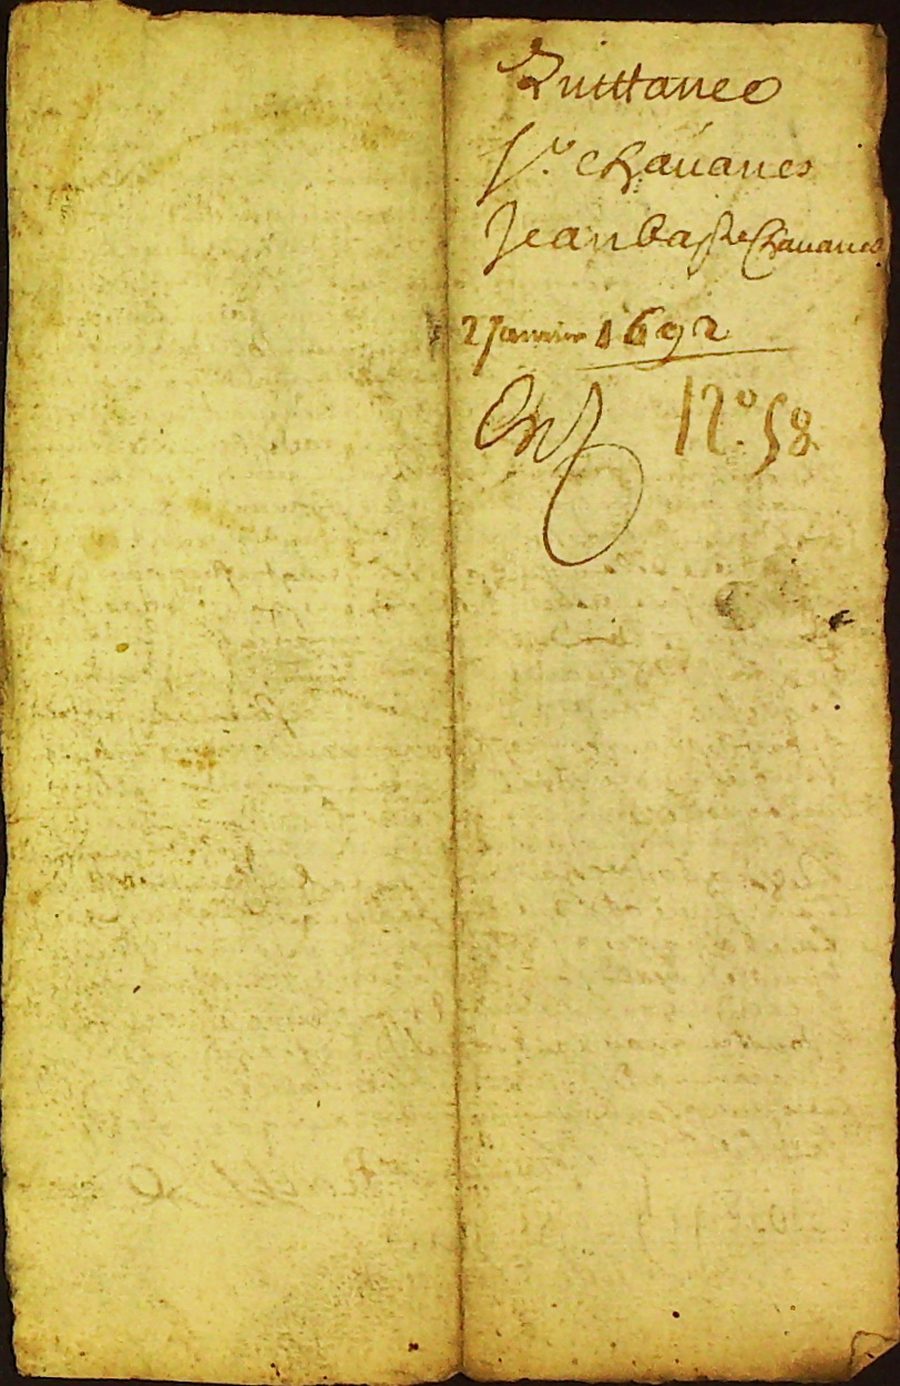 Quittance
Sr. Chauanes
Jean baste Chauanes
2 Janvier 1692
No. 58